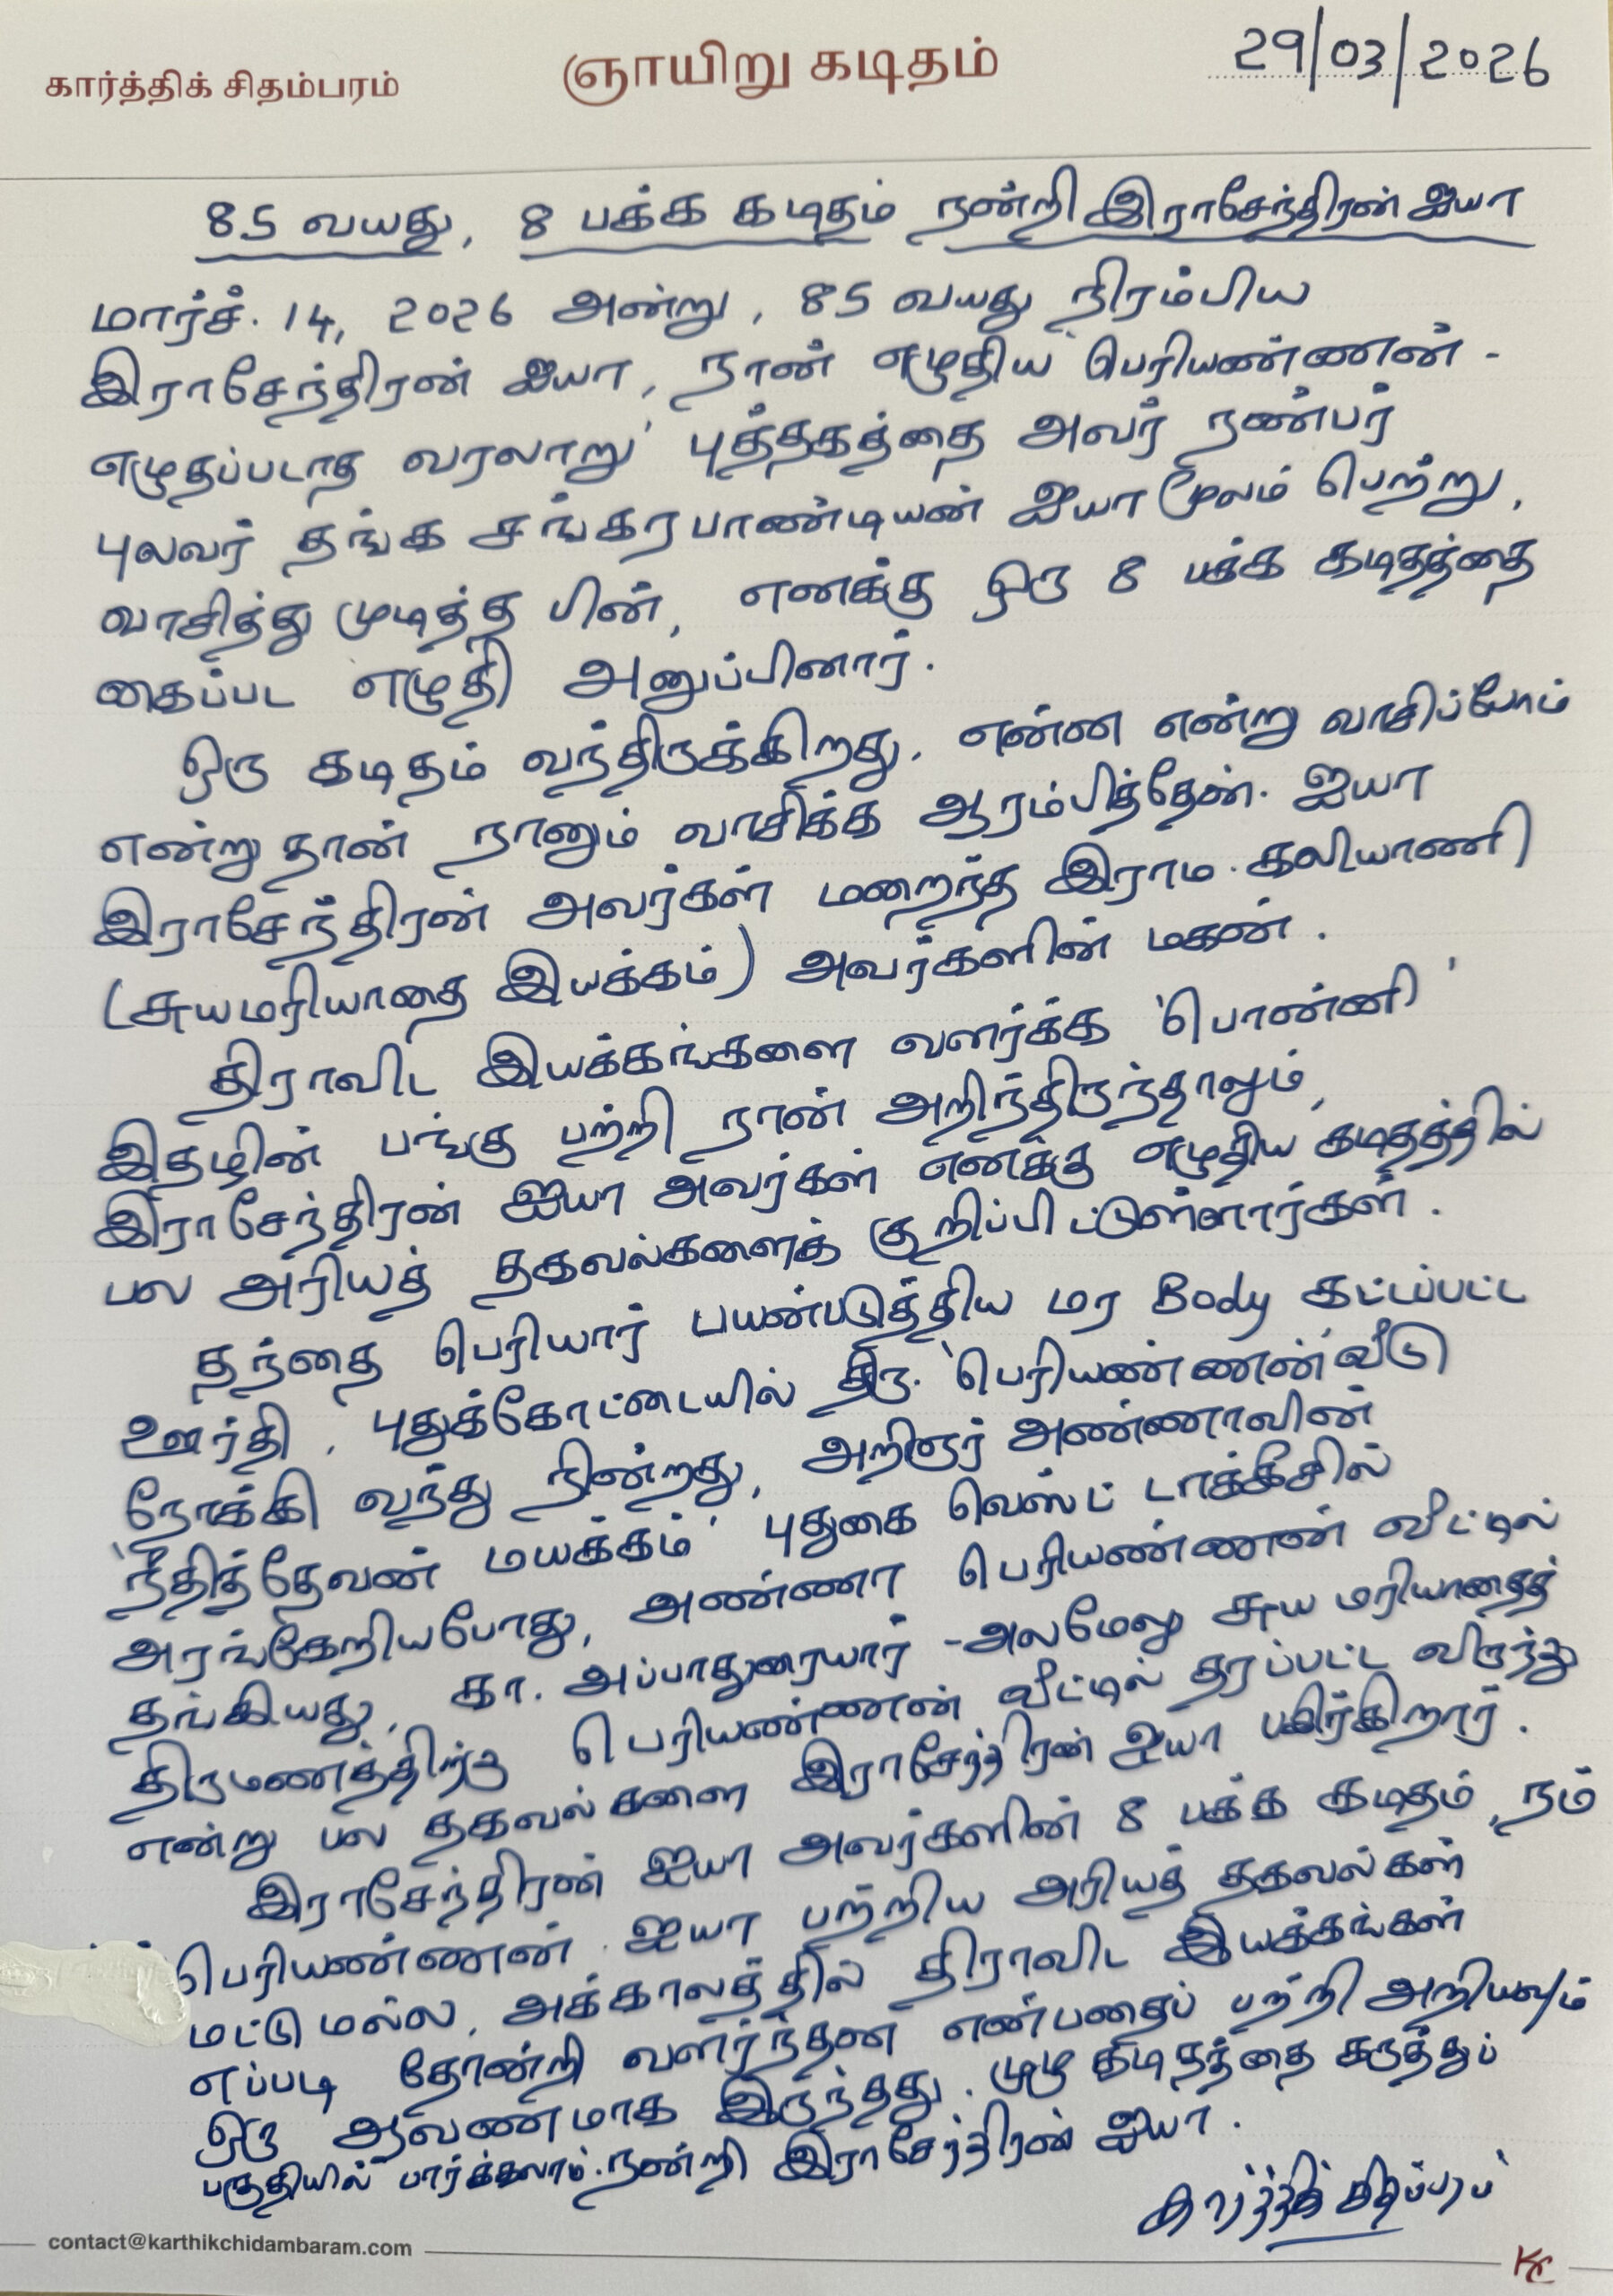 கார்த்திக் சிதம்பரம்
ஞாயிறு கடிதம்
29/03/2026
85 வயது, 8 பக்க கடிதம் நன்றி இராசேந்திரன் ஐயா
மார்ச். 14, 2026 அன்று, 85 வயது நிரம்பிய
இராசேந்திரன் ஐயா, நான் எழுதிய 'பெரியண்ணன் -
எழுதப்படாத வரலாறு' புத்தகத்தை அவர் நண்பர்
புலவர் தங்க சங்கரபாண்டியன் ஐயா மூலம் பெற்று,
வாசித்து முடித்த பின், எனக்கு ஒரு 8 பக்க கடிதத்தை
கைப்பட எழுதி அனுப்பினார்.
ஒரு கடிதம் வந்திருக்கிறது. என்ன என்று வாசிப்போம்
என்று தான் நானும் வாசிக்க ஆரம்பித்தேன். ஐயா
இராசேந்திரன் அவர்கள் மறைந்த இராம. கலியாணி
(சுயமரியாதை இயக்கம்) அவர்களின் மகன்.
திராவிட இயக்கங்களை வளர்க்க 'பொண்ணி'
இதழின் பங்கு பற்றி நான் அறிந்திருந்தாலும்,
இராசேந்திரன் ஐயா அவர்கள் எனக்கு எழுதிய கடிதத்தில்
பல அரியத் தகவல்களைக் குறிப்பிட்டுள்ளார்கள்.
தந்தை பெரியார் பயன்படுத்திய மர Body கட்டப்பட்ட
ஊர்தி, புதுக்கோட்டையில் திரு. 'பெரியண்ணன்' வீடு
நோக்கி வந்து நின்றது, அறிஞர் அண்ணாவின்
'நீதித்தேவன் மயக்கம்' புதுகை வெஸ்ட் டாக்கீசில்
அரங்கேறியபோது, அண்ணா பெரியண்ணன் வீட்டில்
தங்கியது, கா. அப்பாதுரையார் - அலமேலு சுய மரியாதைத்
திருமணத்திற்கு பெரியண்ணன் வீட்டில் தரப்பட்ட விருந்து
என்று பல தகவல்களை இராசேந்திரன் ஐயா பகிர்கிறார்.
இராசேந்திரன் ஐயா அவர்களின் 8 பக்க கடிதம், நம்
பெரியண்ணன் ஐயா பற்றிய அரியத் தகவல்கள்
மட்டுமல்ல, அக்காலத்தில் திராவிட இயக்கங்கள்
எப்படி தோன்றி வளர்ந்தன என்பதைப் பற்றி அறியவும்
ஒரு ஆவணமாக இருந்தது. முழு கடிதத்தை கருத்துப்
பகுதியில் பார்க்கலாம். நன்றி இராசேந்திரன் ஐயா.
கார்த்திக் சிதம்பரம்
contact@karthikchidambaram.com
KC